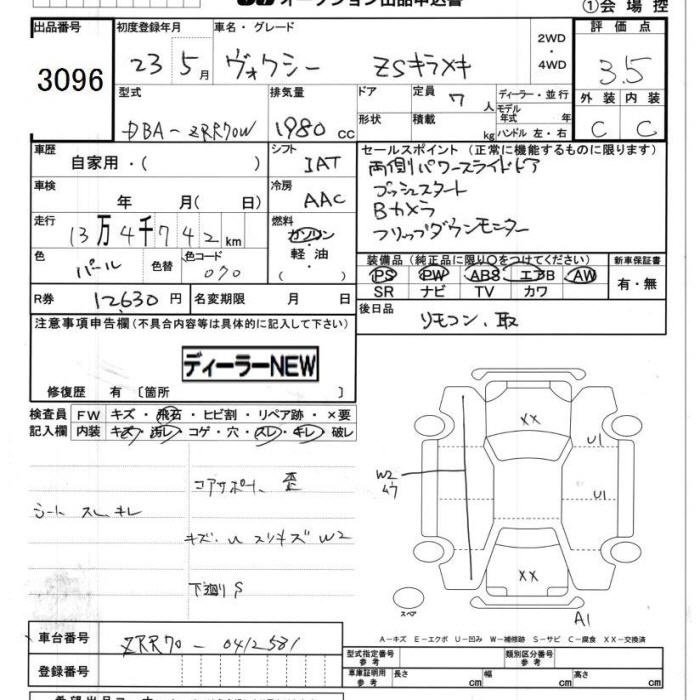 オークション出品申込書 ①会場控
出品番号 3096
初度登録年月 23 5月
車名・グレード ヴォクシー ZSキラメキ
2WD・4WD
評価点 3.5
外装 C 内装 C
型式 DBA-ZRR70W
排気量 1980 cc
ドア 形状
定員 7 人
積載 kg
ディーラー・並行
モデル年式 年
ハンドル 左・右
車歴 自家用・( )
シフト IAT
セールスポイント(正常に機能するものに限ります)
両側パワースライドドア
プッシュスタート
Bカメラ
フリップダウンモニター
車検 年 月( 日)
冷房 AAC
走行 13万4千742km
燃料 ガソリン・軽油・( )
色 パール 色替 色コード 070
装備品(純正品に限り○をつけてください)
PS PW ABS エアB AW
SR ナビ TV カワ
新車保証書 有・無
R券 12,630円 名変期限 月 日
後日品 リモコン、取
注意事項申告欄(不具合内容等は具体的に記入して下さい)
ディーラーNEW
修復歴 有〔箇所 〕
検査員記入欄 FW キズ・飛石・ヒビ割・リペア跡・×要
内装 キズ・汚レ・コゲ・穴・スレ・キレ・破レ
コアサポート 歪
シート スレ キレ
キズ・U スリキズ W2
下廻りS
XX
U1
W2
U1
XX
スペア
A1
A-キズ E-エクボ U-凹み W-補修跡 S-サビ C-腐食 XX-交換済
車台番号 ZRR70-0412581
登録番号
型式指定番号 参考 類別区分番号 参考
車庫証明用 参考 長さ cm 幅 cm 高さ cm